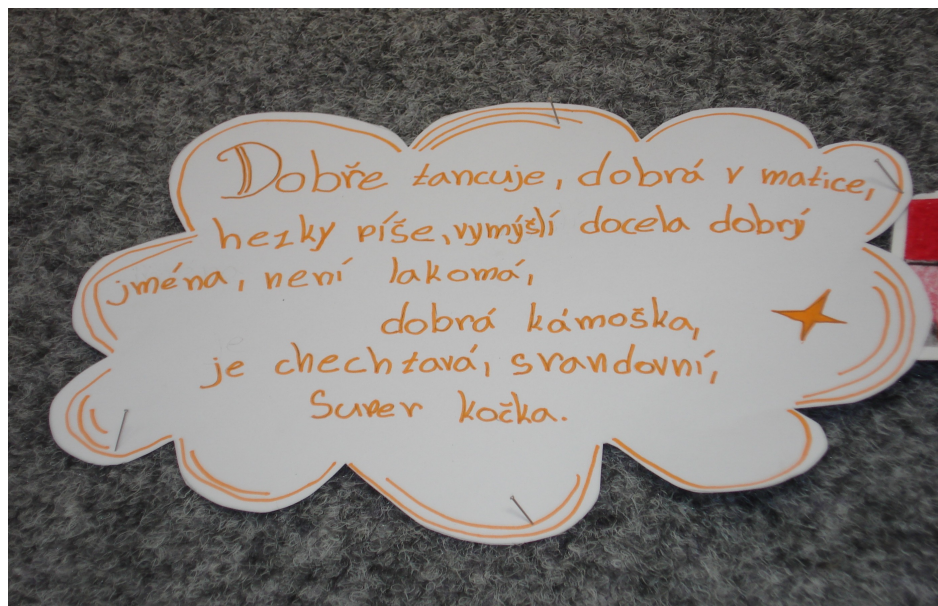 Dobře tancuje, dobrá v matice,
hezky píše, vymýšlí docela dobrý
jména, není lakomá,
dobrá kámoška,
je chechtavá, srandovní,
Super kočka.